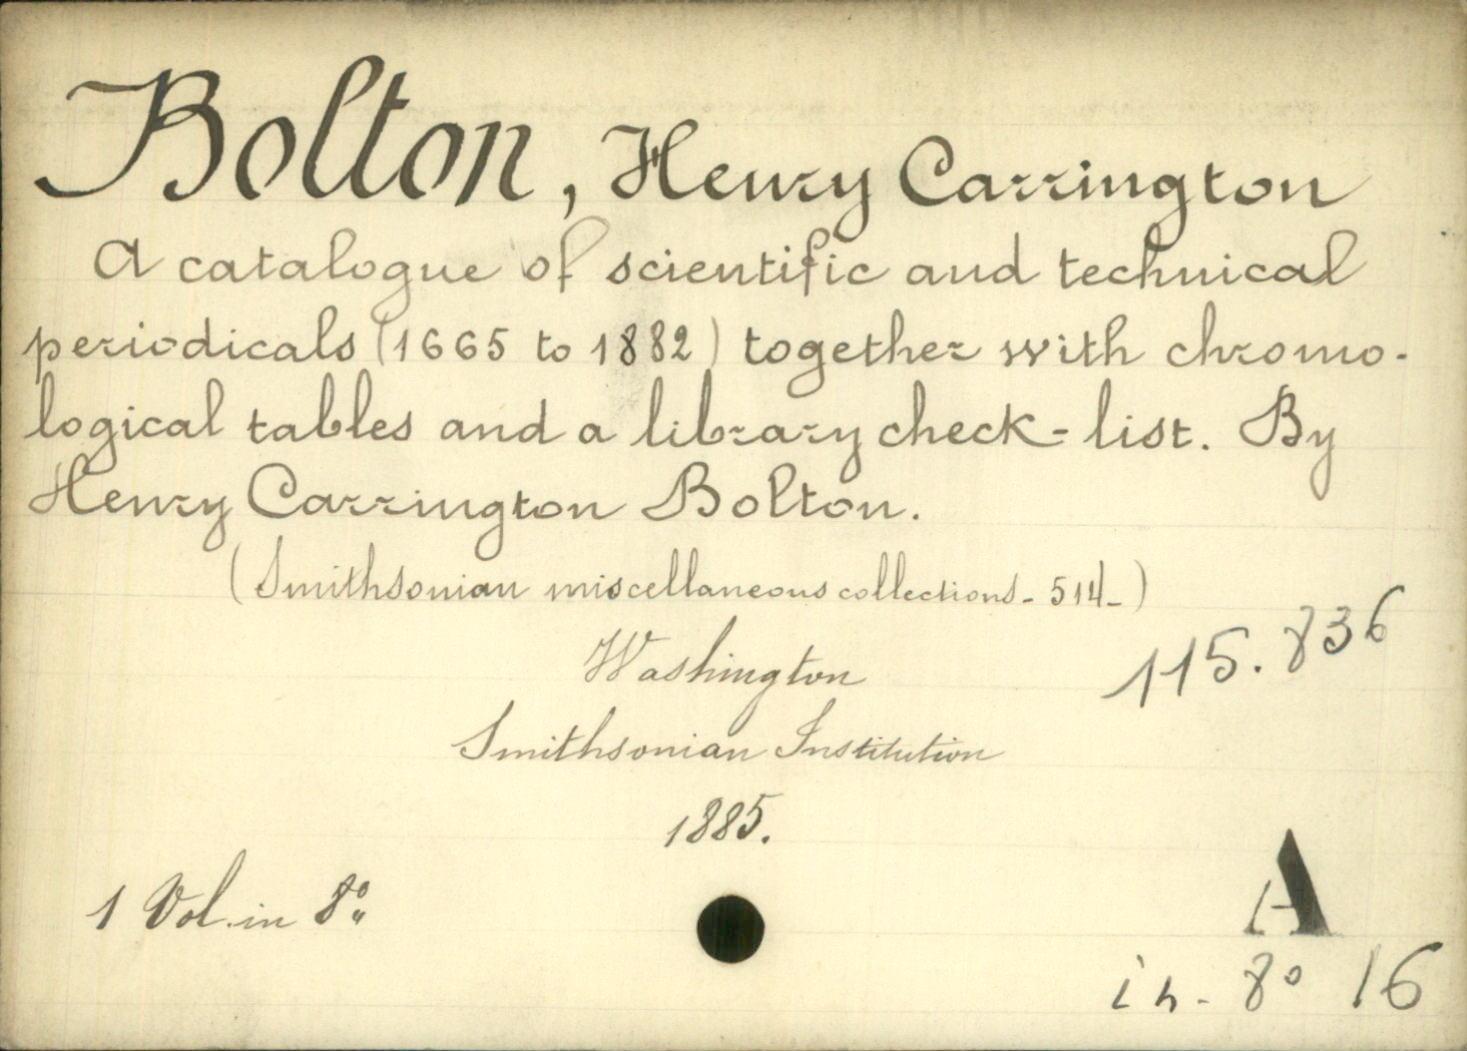 Bolton, Henry Carrington
A catalogue of scientific and technical
periodicals (1665 to 1882) together with chrono-
logical tables and a library check-list. By
Henry Carrington Bolton.
(Smithsonian miscellaneous collections - 514 -)
115.836
Washington
Smithsonian Institution
1885.
1 Vol. in 8°
A
in-8° 16